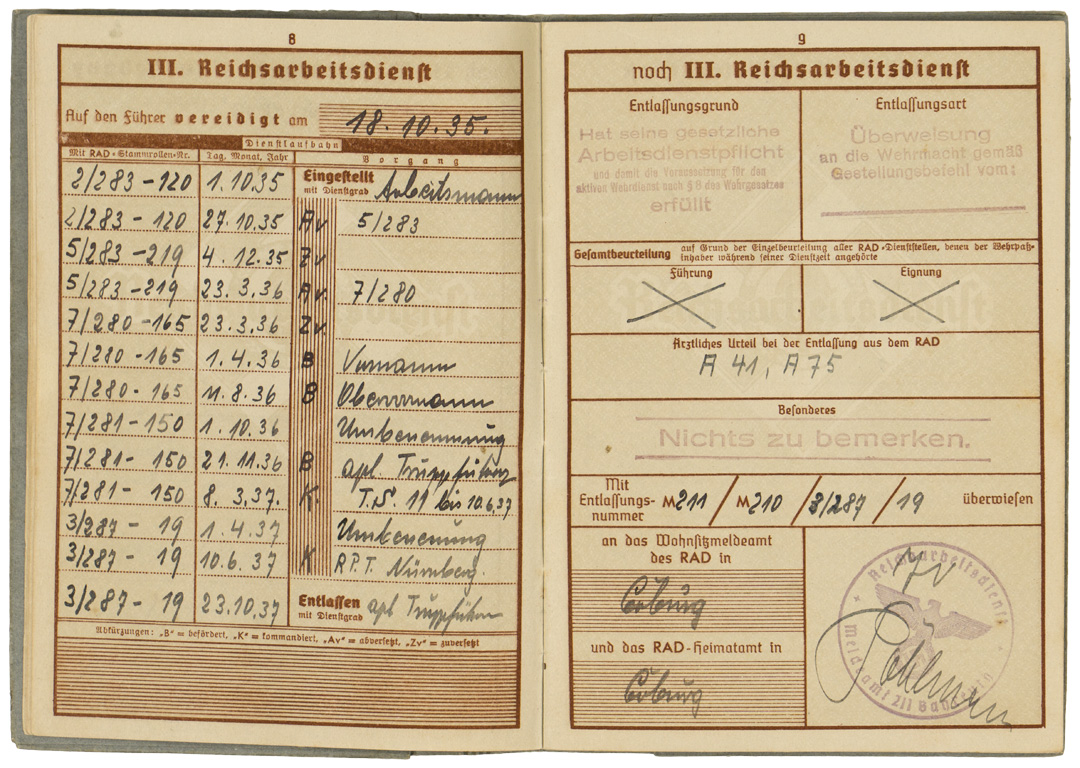 8
III. Reichsarbeitsdienst
Auf den Führer vereidigt am 18.10.35.
Dienstlaufbahn
Mit RAD-Stammrollen-Nr. Tag, Monat, Jahr Vorgang
2/283-120 1.10.35 Eingestellt mit Dienstgrad Arbeitsmann
2/283-120 27.10.35 Av 5/283
5/283-219 4.12.35 Zv
5/283-219 23.3.36 Av 7/280
7/280-165 23.3.36 Zv
7/280-165 1.4.36 B Vormann
7/280-165 11.8.36 B Obervormann
7/281-150 1.10.36 Umbenennung
7/281-150 21.11.36 B apl. Truppführer
7/281-150 8.3.37. K. T.S. 11 bis 10.6.37
3/287-19 1.4.37 Umbenennung
3/287-19 10.6.37 K R.P.T. Nürnberg.
3/287-19 23.10.37 Entlassen mit Dienstgrad apl Truppführer
Abkürzungen: „B" = befördert, „K" = kommandiert, „Av" = abversetzt, „Zv" = zuversetzt
9
noch III. Reichsarbeitsdienst
Entlassungsgrund
Hat seine gesetzliche
Arbeitsdienstpflicht
und damit die Voraussetzung für den
aktiven Wehrdienst nach § 8 des Wehrgesetzes
erfüllt
Entlassungsart
Überweisung
an die Wehrmacht gemäß
Gestellungsbefehl vom:
Gesamtbeurteilung auf Grund der Einzelbeurteilung aller RAD-Dienststellen, denen der Wehrpaß-
inhaber während seiner Dienstzeit angehörte
Führung Eignung
Ärztliches Urteil bei der Entlassung aus dem RAD
A 41, A 75
Besonderes
Nichts zu bemerken.
Mit
Entlassungs-
nummer M211 / M210 / 3/287 / 19 überwiesen
an das Wohnsitzmeldeamt
des RAD in
Coburg
und das RAD-Heimatamt in
Coburg
Reichsarbeitsdienst
Meldeamt 211